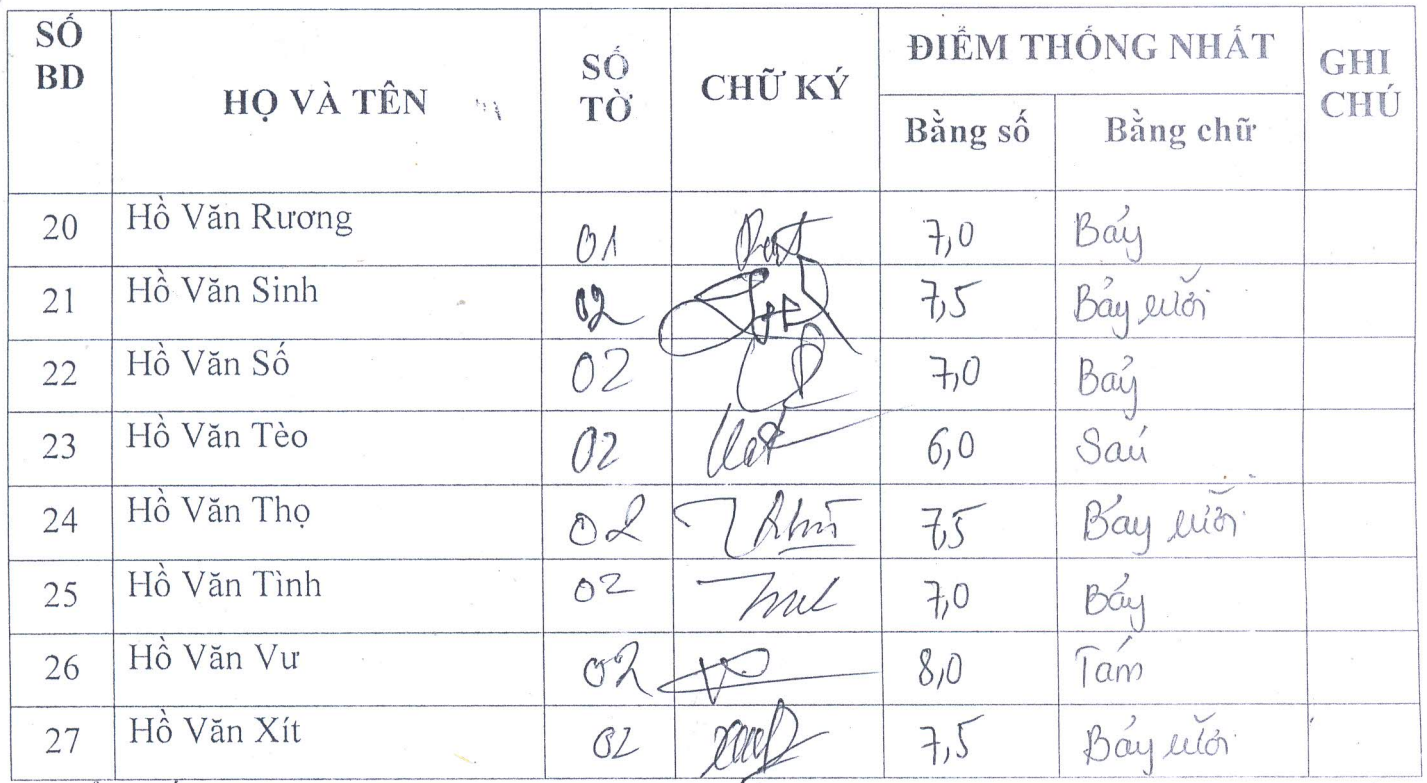 SỐ BD HỌ VÀ TÊN SỐ TỜ CHỮ KÝ ĐIỂM THỐNG NHẤT GHI CHÚ
Bằng số Bằng chữ
20 Hồ Văn Rương 01 7,0 Bảy
21 Hồ Văn Sinh 02 7,5 Bảy rưỡi
22 Hồ Văn Số 02 7,0 Bảy
23 Hồ Văn Tèo 02 6,0 Sáu
24 Hồ Văn Thọ 02 7,5 Bảy rưỡi
25 Hồ Văn Tình 02 7,0 Bảy
26 Hồ Văn Vư 02 8,0 Tám
27 Hồ Văn Xít 02 7,5 Bảy rưỡi